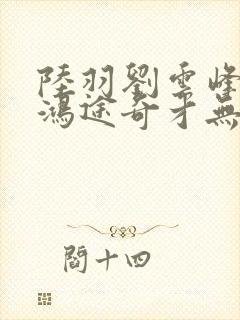 陸羽劉雲峰
鴻途奇才無
閻十四